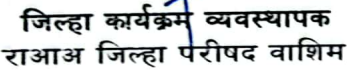 जिल्हा कार्यक्रम व्यवस्थापक
राआअ जिल्हा परीषद वाशिम